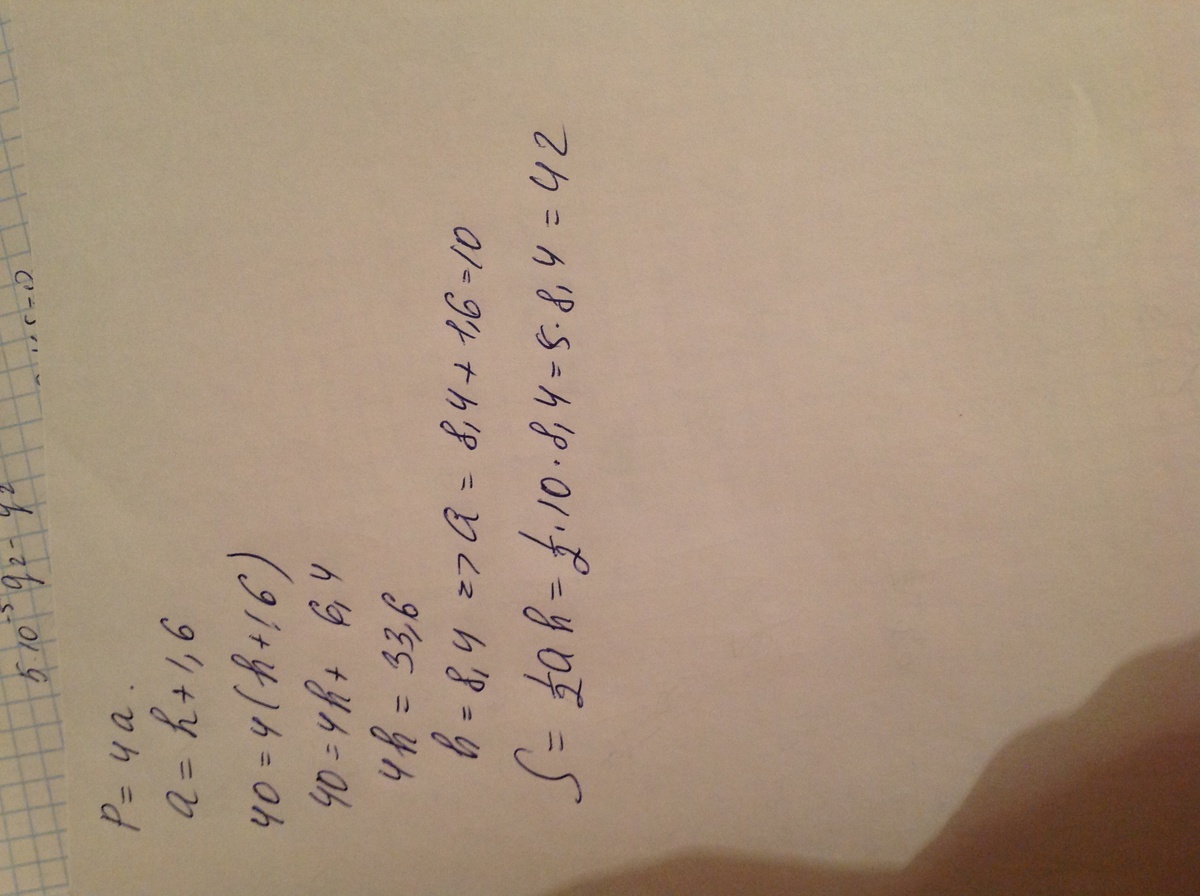 5·10⁻⁵ q₂ - q₂
P = 4a.
a = h + 1,6
40 = 4(h + 1,6)
40 = 4h + 6,4
4h = 33,6
h = 8,4 => a = 8,4 + 1,6 = 10
S = ½ah = ½·10·8,4 = 5·8,4 = 42